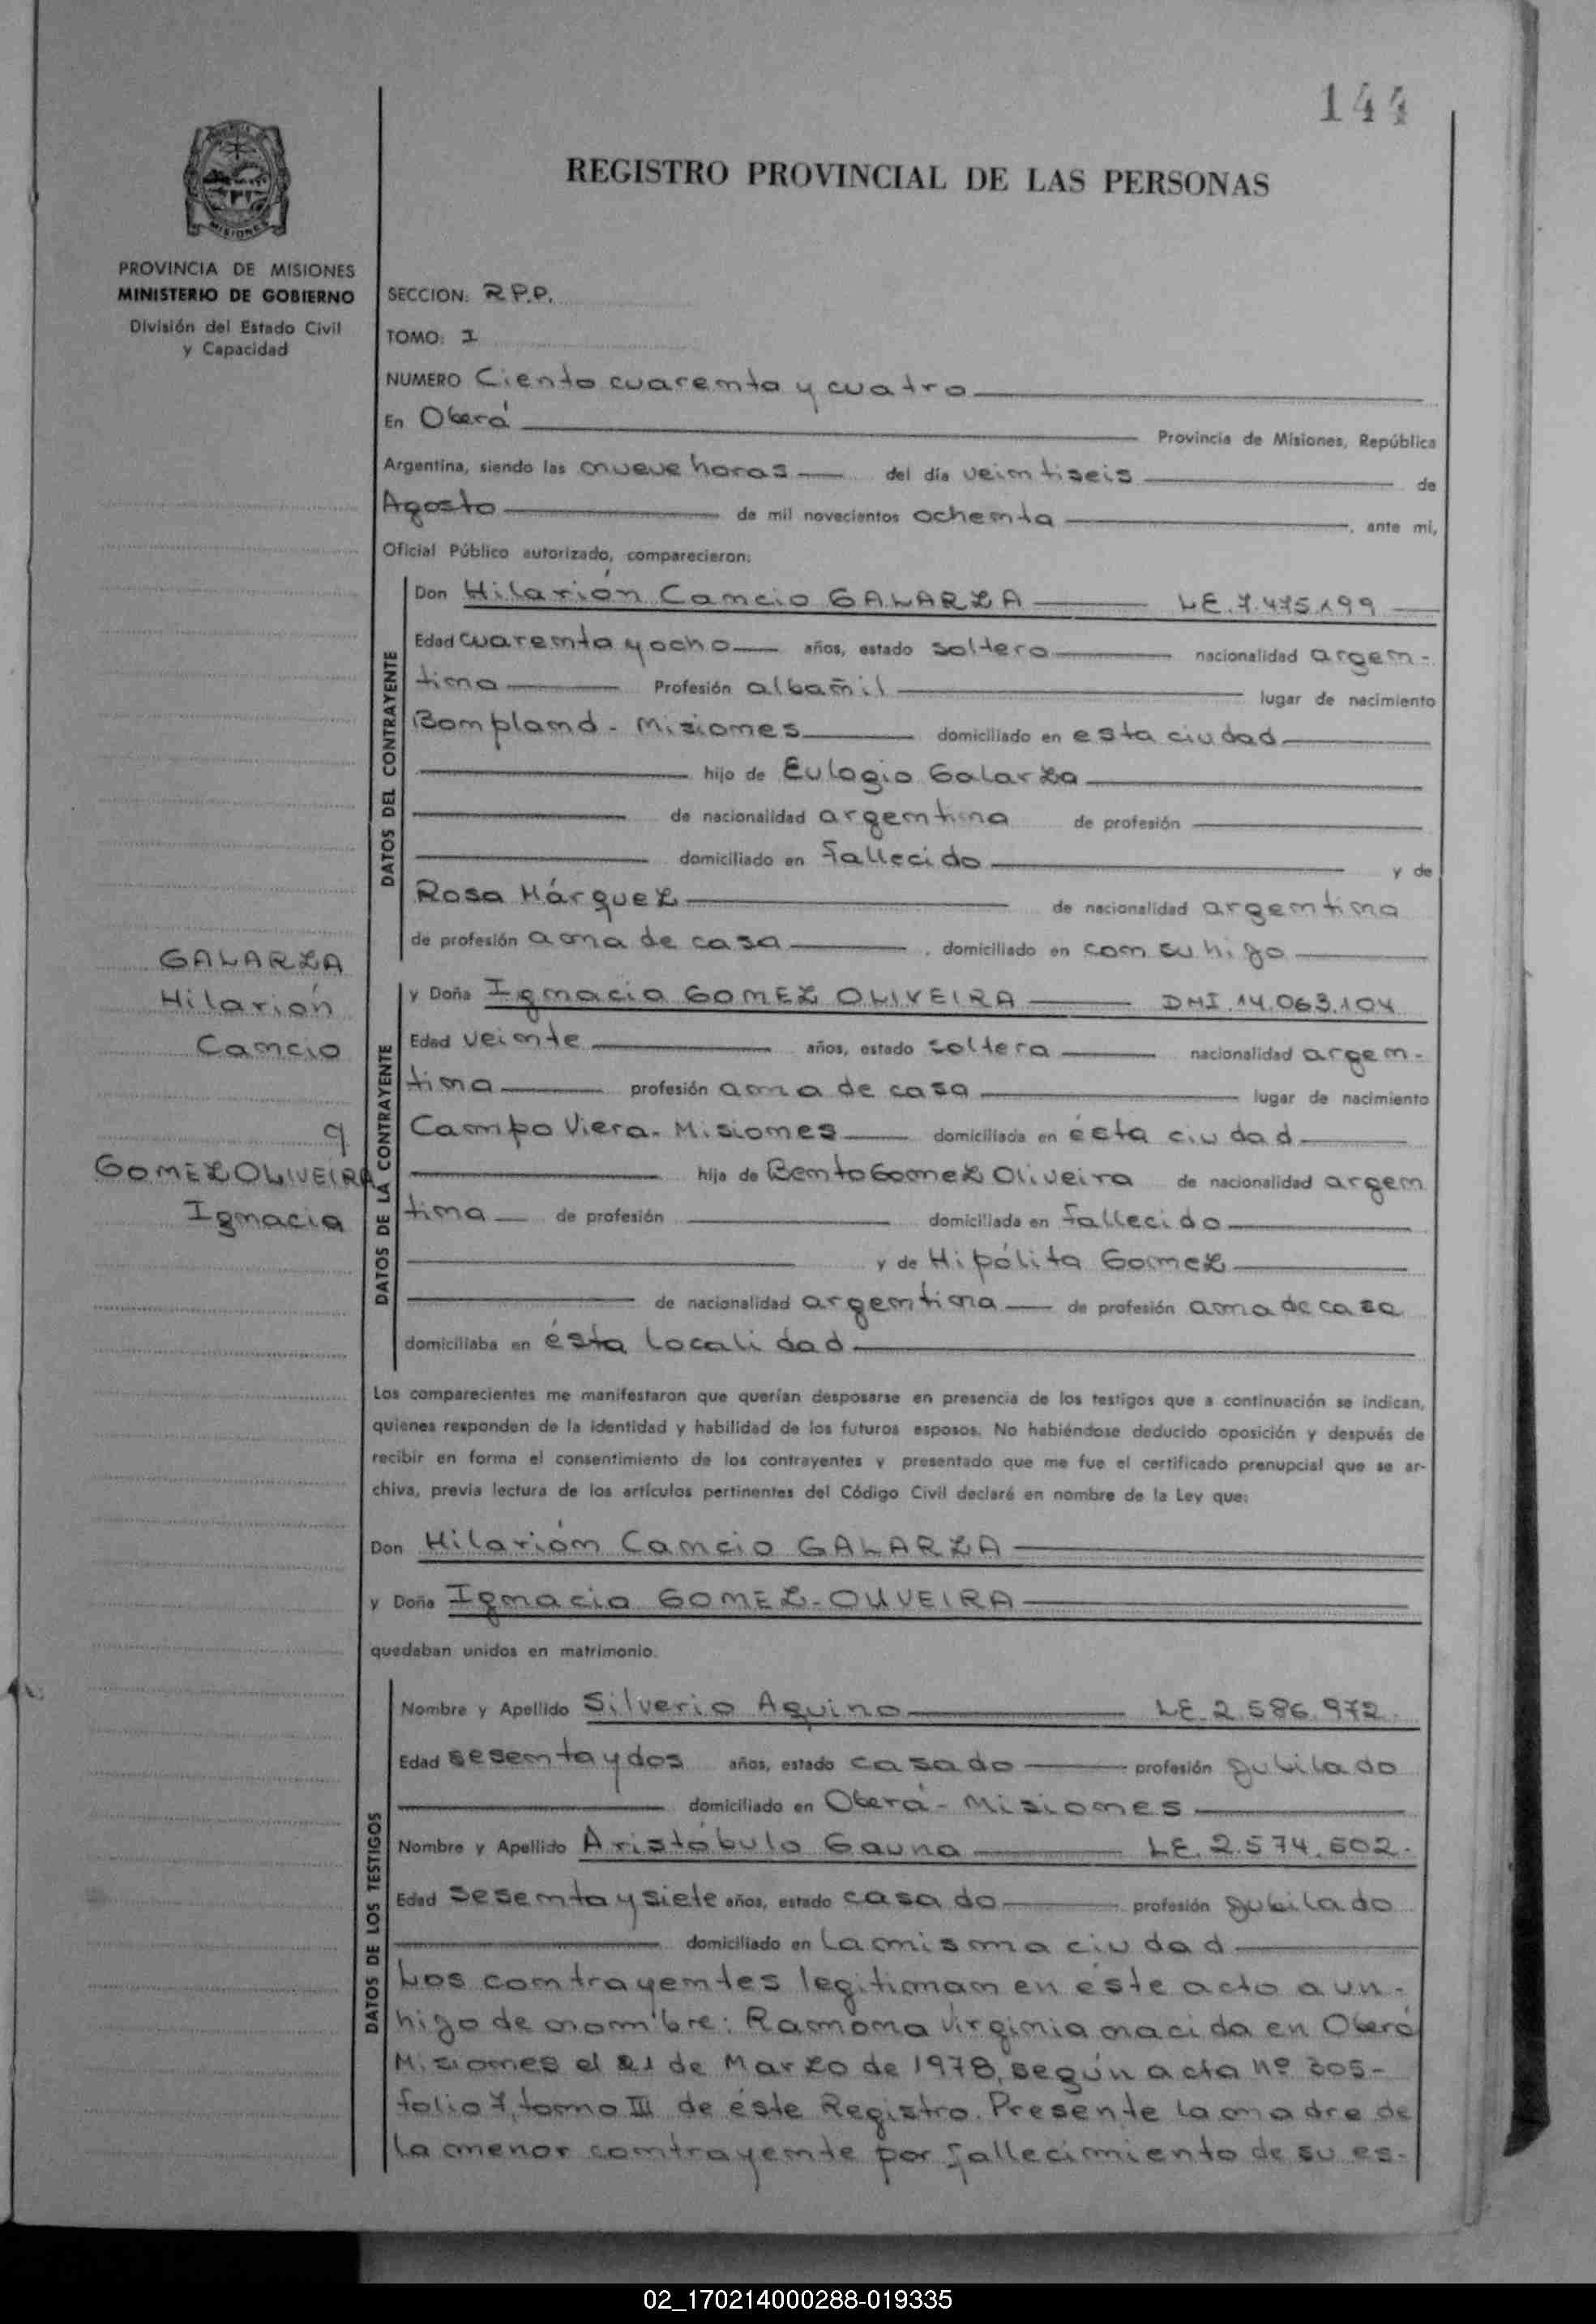 144
REGISTRO PROVINCIAL DE LAS PERSONAS
MISIONES
PROVINCIA DE MISIONES
MINISTERIO DE GOBIERNO
División del Estado Civil
y Capacidad
SECCION: R.P.P.
TOMO: I
NUMERO Ciento cuarenta y cuatro
En Oberá Provincia de Misiones, República
Argentina, siendo las nueve horas del día veintiseis de
Agosto de mil novecientos ochenta, ante mi,
Oficial Público autorizado, comparecieron:
DATOS DEL CONTRAYENTE
Don Hilarión Cancio GALARZA LE.7.475.199
Edad cuarenta y ocho años, estado soltero nacionalidad argen-
tina Profesión albañil lugar de nacimiento
Bonpland - Misiones domiciliado en esta ciudad
hijo de Eulogio Galarza
de nacionalidad argentina de profesión
domiciliado en fallecido y de
Rosa Márquez de nacionalidad argentina
de profesión ama de casa, domiciliado en con su hijo
GALARZA
Hilarión
Cancio
y
GOMEZ OLIVEIRA
Ignacia
DATOS DE LA CONTRAYENTE
y Doña Ignacia GOMEZ OLIVEIRA DNI.14.063.104
Edad veinte años, estado soltera nacionalidad argen-
tina profesión ama de casa lugar de nacimiento
Campo Viera - Misiones domiciliada en ésta ciudad
hija de Bento Gomez Oliveira de nacionalidad argen
tina de profesión domiciliada en fallecido
y de Hipólita Gomez
de nacionalidad argentina de profesión ama de casa
domiciliaba en ésta localidad
Los comparecientes me manifestaron que querían desposarse en presencia de los testigos que a continuación se indican,
quienes responden de la identidad y habilidad de los futuros esposos. No habiéndose deducido oposición y después de
recibir en forma el consentimiento de los contrayentes y presentado que me fue el certificado prenupcial que se ar-
chiva, previa lectura de los artículos pertinentes del Código Civil declaré en nombre de la Ley que:
Don Hilarión Cancio GALARZA
y Doña Ignacia GOMEZ-OLIVEIRA
quedaban unidos en matrimonio.
DATOS DE LOS TESTIGOS
Nombre y Apellido Silverio Aquino LE.2.586.972.
Edad sesenta y dos años, estado casado profesión jubilado
domiciliado en Oberá - Misiones
Nombre y Apellido Aristóbulo Gauna LE.2.574.602.
Edad sesenta y siete años, estado casado profesión jubilado
domiciliado en la misma ciudad
Los contrayentes legitiman en éste acto a un-
hijo de nombre: Ramona Virginia nacida en Oberá
Misiones el 21 de Marzo de 1978, según acta nº 305-
folio 7, tomo III de éste Registro. Presente la madre de
la menor contrayente por fallecimiento de su es-
02_170214000288-019335